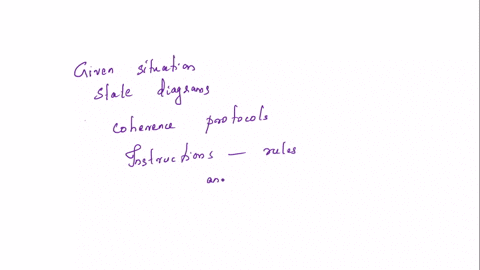 Given situation
state diagrams
coherence protocols
Instructions — rules
an.